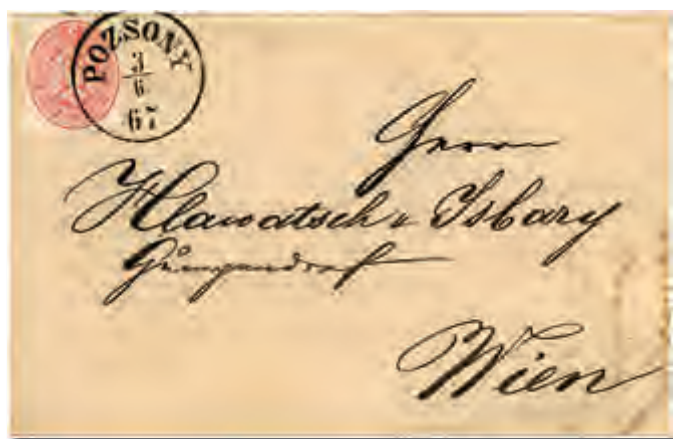 POZSONY
3
6
67
Herrn
Hlawatsch & Isbary
Gumpendorf
Wien